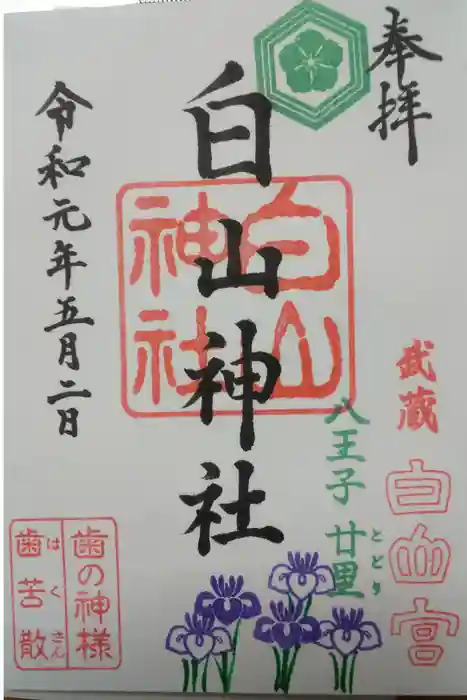 奉拝
武蔵
白山宮
八王子 廿里
とどり
白山神社
白山
神社
令和元年五月二日
歯の神様
歯苦散
はくさん